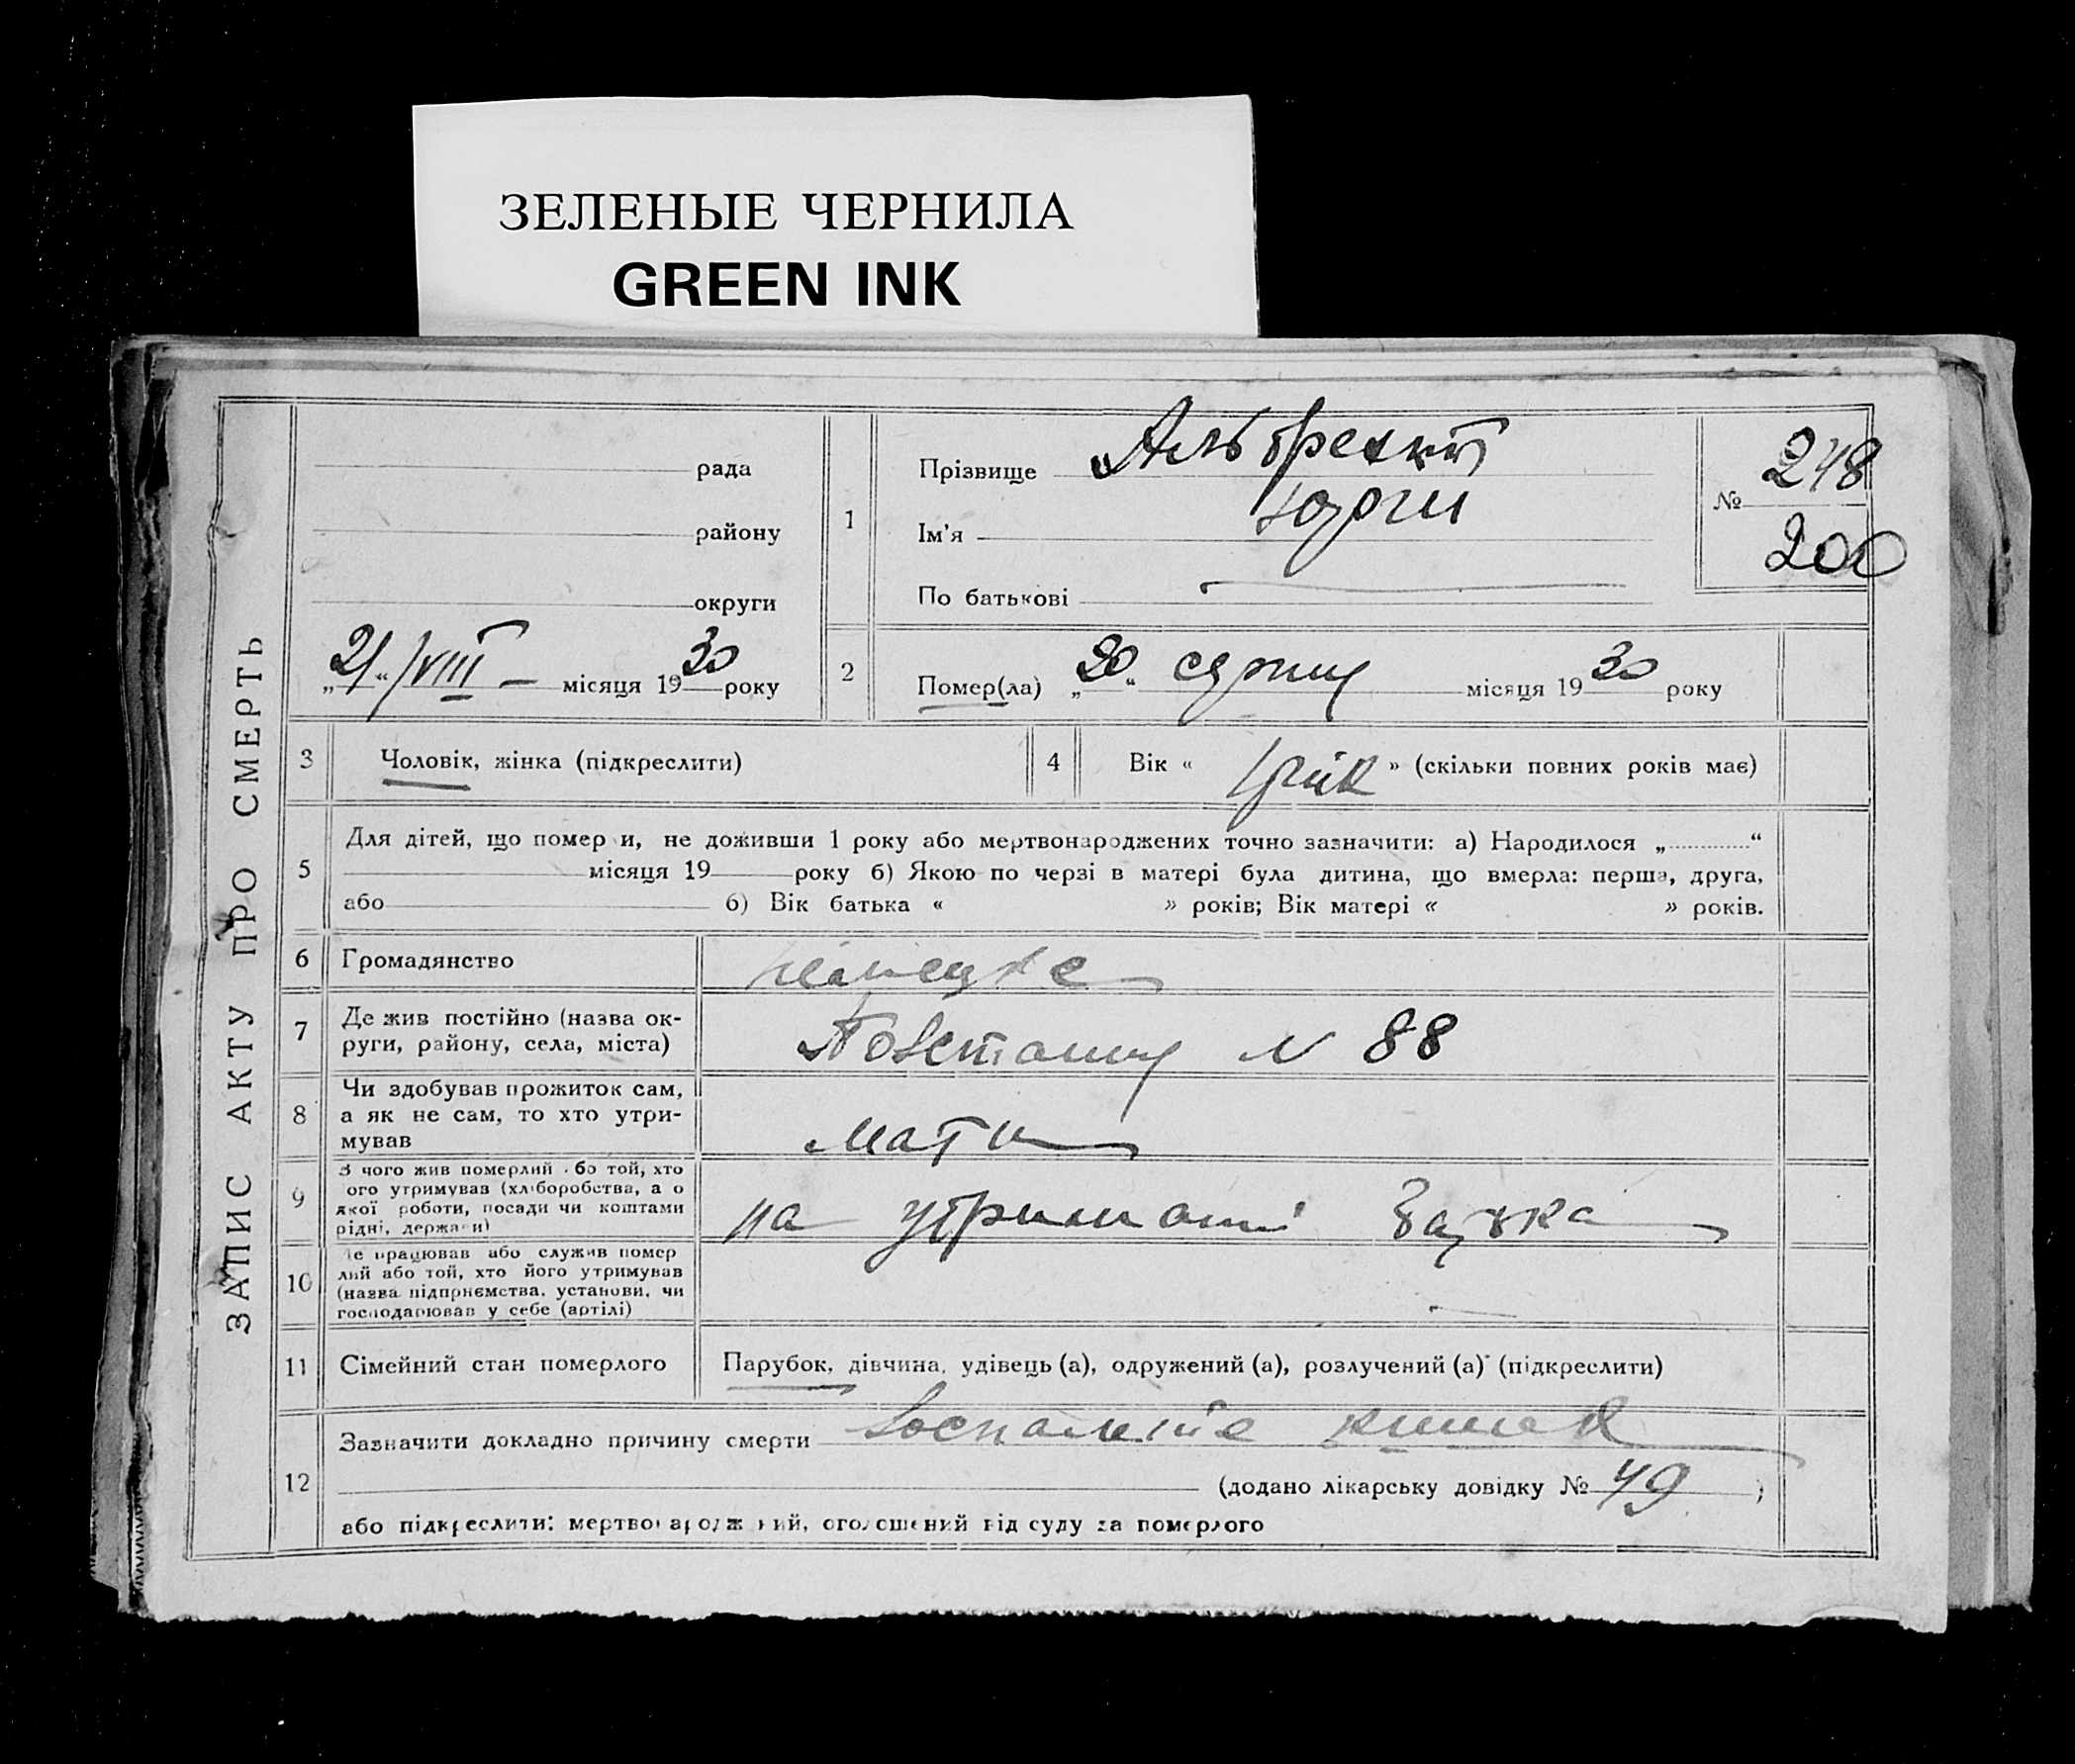 ЗЕЛЕНЫЕ ЧЕРНИЛА
GREEN INK
ЗАПИС АКТУ ПРО СМЕРТЬ
рада
району
округи
„21“ /VIII – місяця 1930 року
1
Прізвище Альбрехт
Ім'я Юрги
По батькові
№ 248
200
2
Помер(ла) „20“ серпня місяця 1930 року
3
Чоловік, жінка (підкреслити)
4
Вік « 1 рік » (скільки повних років має)
5
Для дітей, що помер и, не доживши 1 року або мертвонароджених точно зазначити: а) Народилося „ “
місяця 19 року б) Якою по черзі в матері була дитина, що вмерла: перша, друга,
або б) Вік батька « » років; Вік матері « » років.
6
Громадянство
німецьке
7
Де жив постійно (назва ок-
руги, району, села, міста)
N 88
8
Чи здобував прожиток сам,
а як не сам, то хто утри-
мував
мати
9
З чого жив померлий бо той, хто
ого утримував (хліборобства, а о
якої роботи, посади чи коштами
рідні, держави)
на утриманні
10
е працював або служив помер
лий або той, хто його утримував
(назва підприємства, установи, чи
господарював у себе (артілі)
11
Сімейний стан померлого
Парубок, дівчина, удівець (а), одружений (а), розлучений (а) (підкреслити)
12
Зазначити докладно причину смерти воспаленіе кишек
(додано лікарську довідку № 49 )
або підкреслити: мертвонароджений, оголошений від суду за померлого